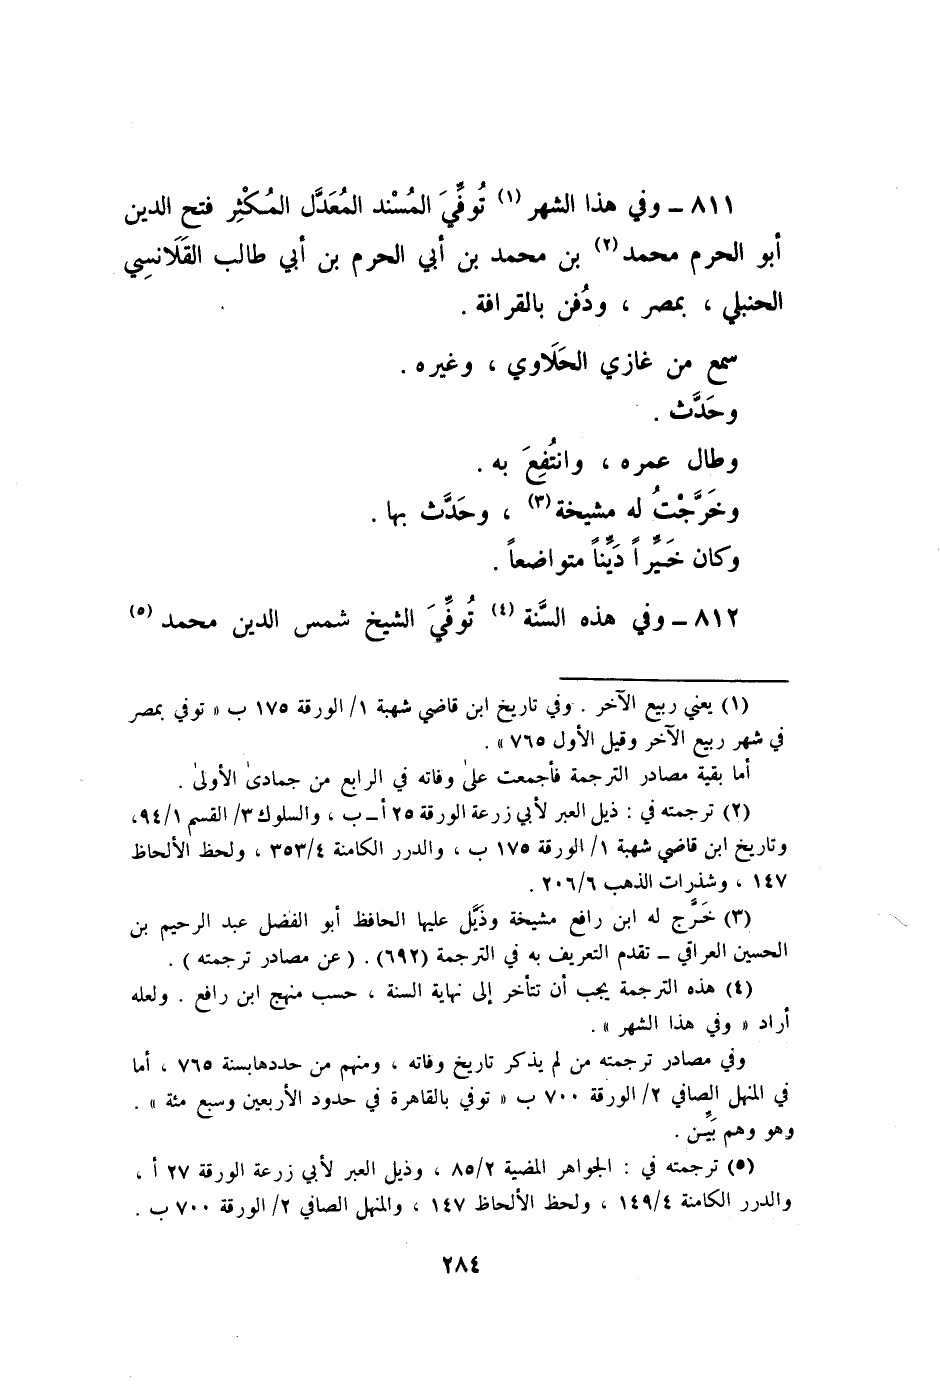 ٨١١ ـ وفي هذا الشهر (١) تُوفِّيَ المُسْند المُعَدَّل المُكْثِر فتح الدين
أبو الحرم محمد (٢) بن محمد بن محمد بن أبي الحرم بن أبي طالب القَلَانسِي
الحنبلي ، بمصر ، ودُفن بالقرافة .
سمع من غازي الحَلَاوي ، وغيره .
وحَدَّث .
وطال عمره ، وانتُفِعَ به .
وخَرَّجْتُ له مشيخة (٣) ، وحَدَّث بها .
وكان خَيِّراً دَيِّناً متواضعاً .
٨١٢ ـ وفي هذه السَّنة (٤) تُوفِّيَ الشيخ شمس الدين محمد (٥)
(١) يعني ربيع الآخر . وفي تاريخ ابن قاضي شهبة ١/ الورقة ١٧٥ ب « توفي بمصر
في شهر ربيع الآخر وقيل الأول ٧٦٥ » .
أما بقية مصادر الترجمة فأجمعت علىٰ وفاته في الرابع من جمادىٰ الأولىٰ .
(٢) ترجمته في : ذيل العبر لأبي زرعة الورقة ٢٥ أ ـ ب ، والسلوك ٣/ القسم ٩٤/١،
وتاريخ ابن قاضي شهبة ١/ الورقة ١٧٥ ب ، والدرر الكامنة ٣٥٣/٤ ، ولحظ الألحاظ
١٤٧ ، وشذرات الذهب ٢٠٦/٦ .
(٣) خَرَّج له ابن رافع مشيخة وذَيَّل عليها الحافظ أبو الفضل عبد الرحيم بن
الحسين العراقي ـ تقدم التعريف به في الترجمة (٦٩٢) . ( عن مصادر ترجمته ) .
(٤) هذه الترجمة يجب أن تتأخر إلى نهاية السنة ، حسب منهج ابن رافع . ولعله
أراد « وفي هذا الشهر » .
وفي مصادر ترجمته من لم يذكر تاريخ وفاته ، ومنهم من حددها بسنة ٧٦٥ ، أما
في المنهل الصافي ٢/ الورقة ٧٠٠ ب « توفي بالقاهرة في حدود الأربعين وسبع مئة » .
وهو وهم بَيِّن .
(٥) ترجمته في : الجواهر المضية ٨٥/٢ ، وذيل العبر لأبي زرعة الورقة ٢٧ أ ،
والدرر الكامنة ١٤٩/٤ ، ولحظ الألحاظ ١٤٧ ، والمنهل الصافي ٢/ الورقة ٧٠٠ ب .
٢٨٤